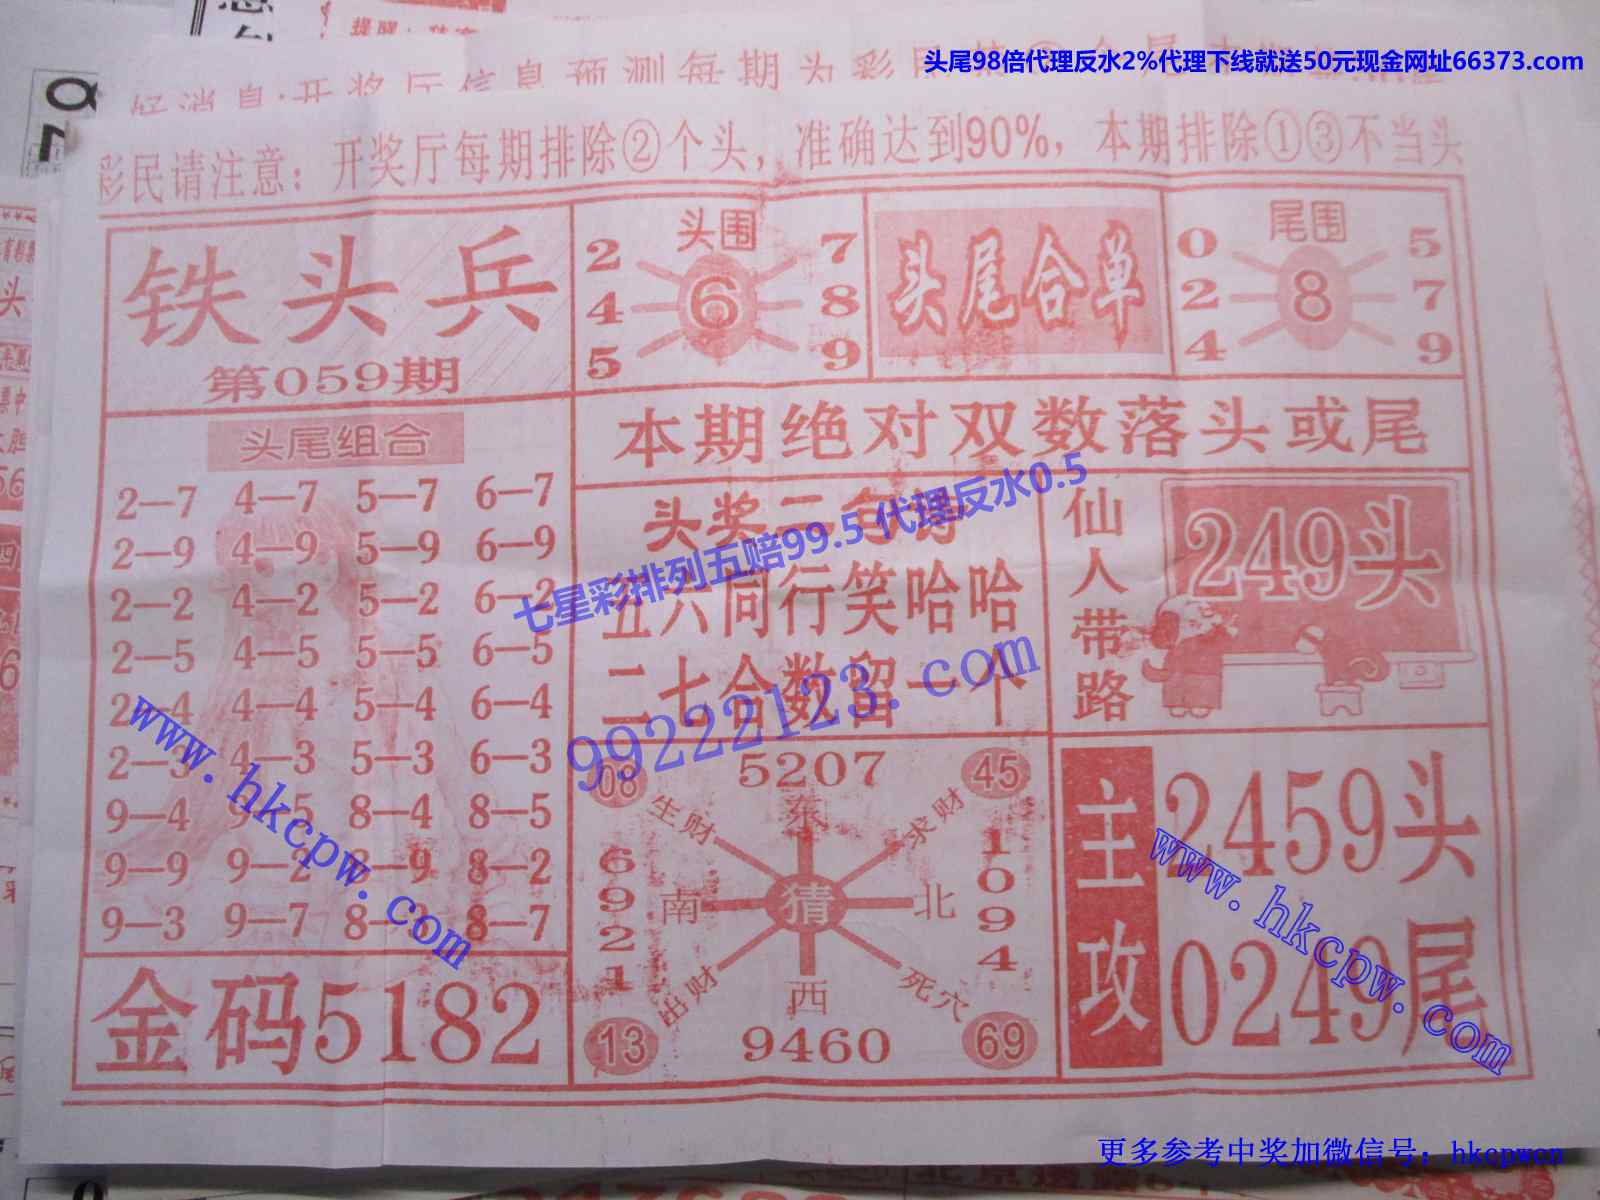 头尾98倍代理反水2%代理下线就送50元现金网址66373.com
好消息:开奖厅信息预测每期为彩民
彩民请注意：开奖厅每期排除②个头，准确达到90%，本期排除①③不当头
铁头兵
第059期
头围
2 7
4 6 8
5 9
头尾合单
尾围
0 5
2 8 7
4 9
本期绝对双数落头或尾
头尾组合
2—7 4—7 5—7 6—7
2—9 4—9 5—9 6—9
2—2 4—2 5—2 6—2
2—5 4—5 5—5 6—5
2—4 4—4 5—4 6—4
2—3 4—3 5—3 6—3
9—4 9—5 8—4 8—5
9—9 9—2 8—9 8—2
9—3 9—7 8—3 8—7
金码5182
头奖二句诗
五六同行笑哈哈
二七合数留一个
七星彩排列五赔99.5 代理反水0.5
99222123.com
仙人带路
249头
08 5207 45
生财 东 求财
6921 南 猜 北 1094
出财 西 死穴
13 9460 69
主攻
2459头
0249尾
www.hkcpw.com
www.hkcpw.com
更多参考中奖加微信号：hkcpwcn